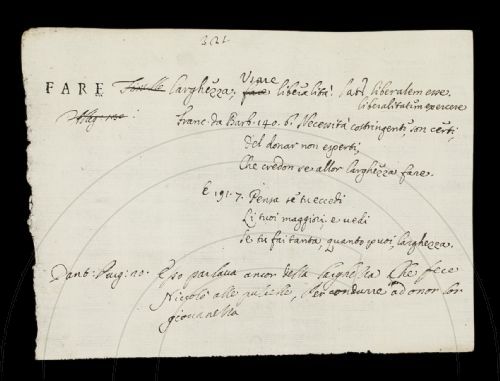 321
FARE Larghezza; Usare fare liberalità. Lat. liberalem esse,
liberalitatem exercere
Franc. da Barb. 140. 6. Necessità costringenti son certi,
Del donar non esperti,
Che credon se allor larghezza fare.
E 191. 7. Pensa se tu eccedi
Li tuoi maggiori; e vedi
Se tu fai tanta, quanto puoi, larghezza.
Dant. Purg. 20. Esso parlava ancor della larghezza Che fece
Niccolò alle pulcelle, Per condurre ad onor lor
giovanezza